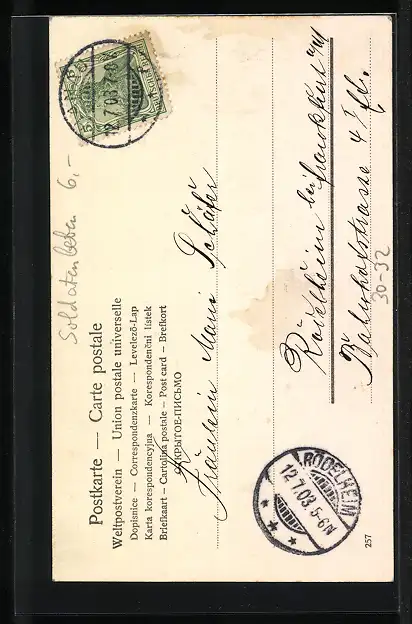 Postkarte — Carte postale
Weltpostverein — Union postale universelle
Dopisnice — Correspondenzkarte — Levelező-Lap
Karta korespondencyjna — Korespondenční lístek
Briefkaart — Cartolina postale — Post card — Brefkort
ОТКРЫТОЕ-ПИСЬМО
Soldatenleben 6,-
12 7.03 7-8
Fräulein Marie Schäfer
Rödelheim bei Frankfurt a/M
Bahnhofstrasse 4
30-32
RÖDELHEIM
12.7.03.5-6N
257